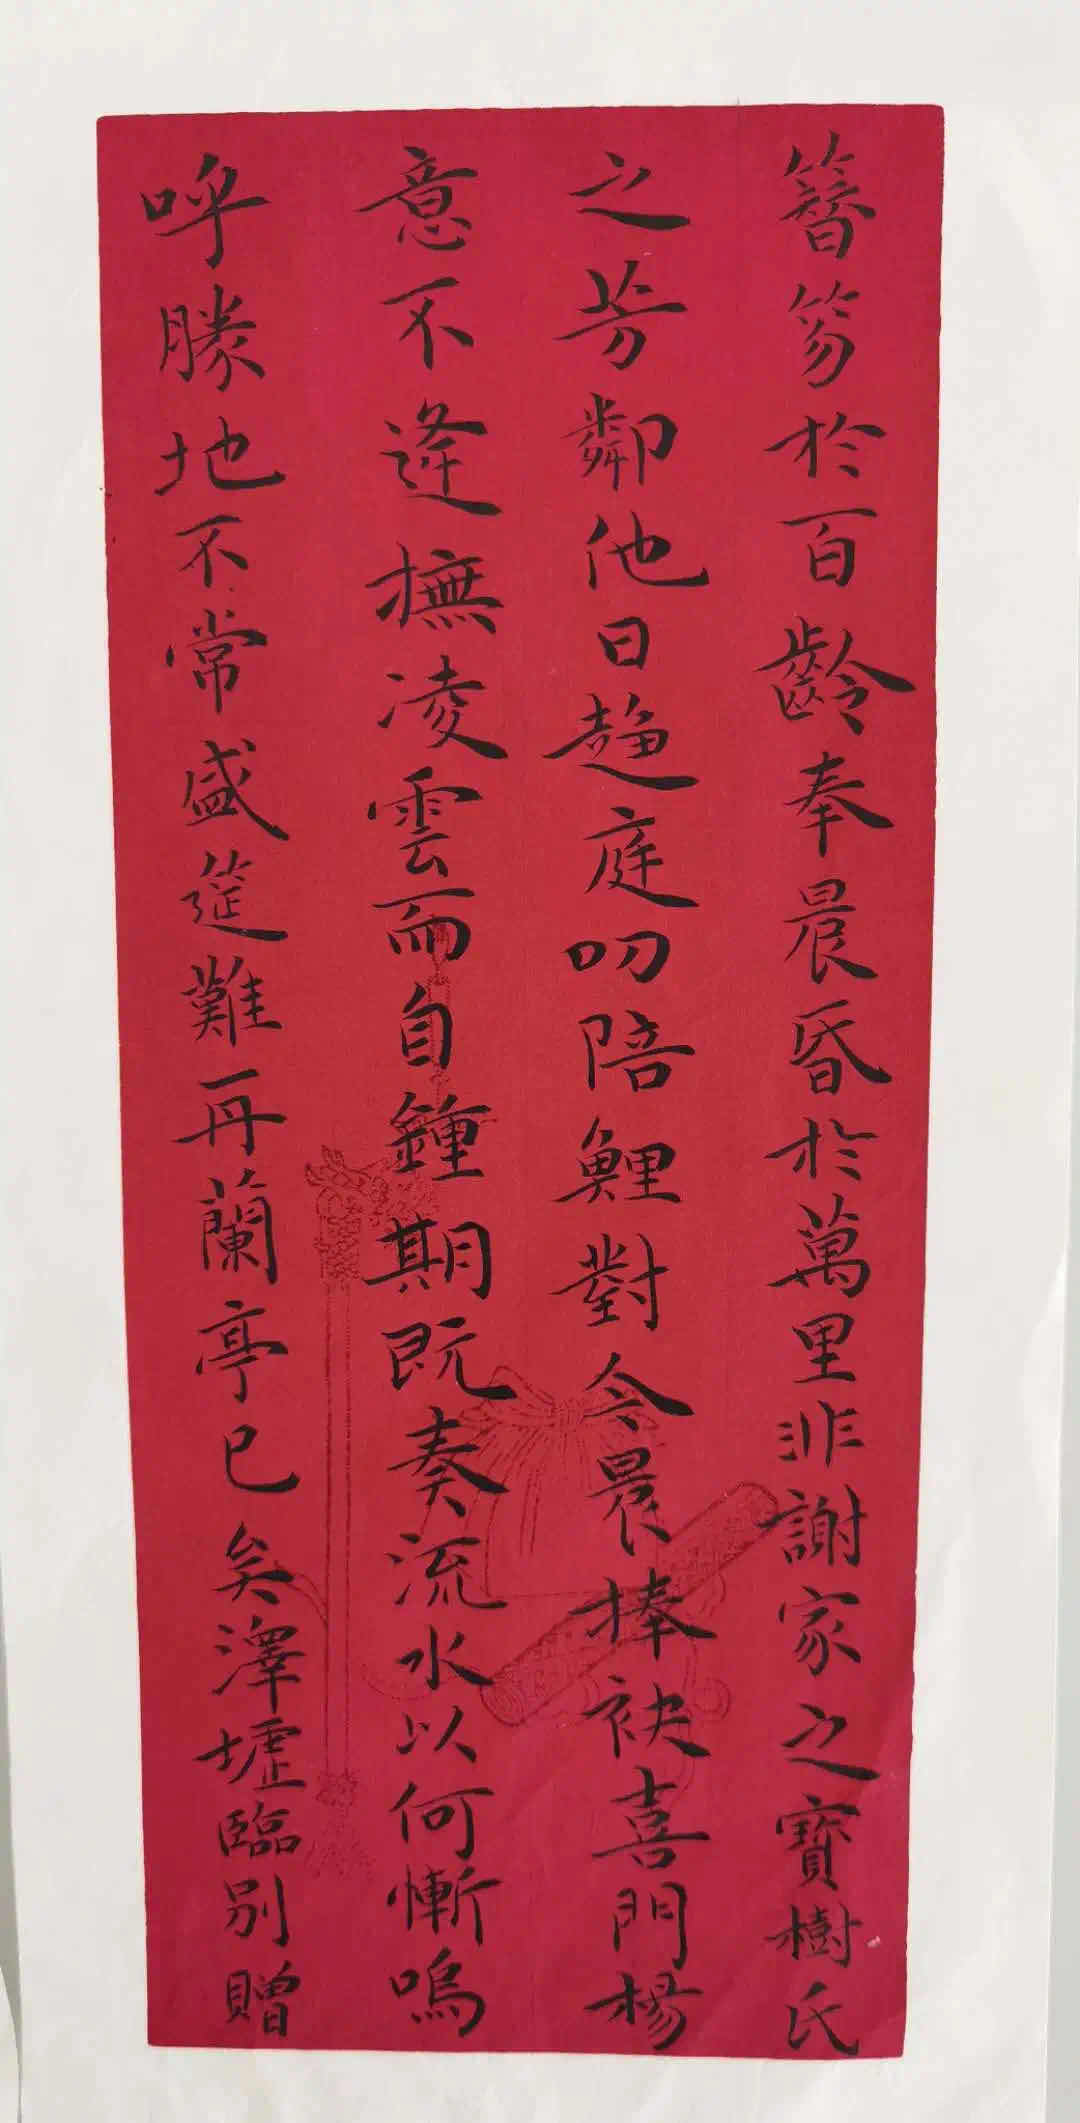 簪笏於百齡奉晨昏於萬里非謝家之寶樹氏
之芳鄰他日趨庭叨陪鯉對今晨捧袂喜門楊
意不逢撫凌雲而自鍾期既奏流水以何慚嗚
呼勝地不常盛筵難再蘭亭已矣澤墟臨別贈